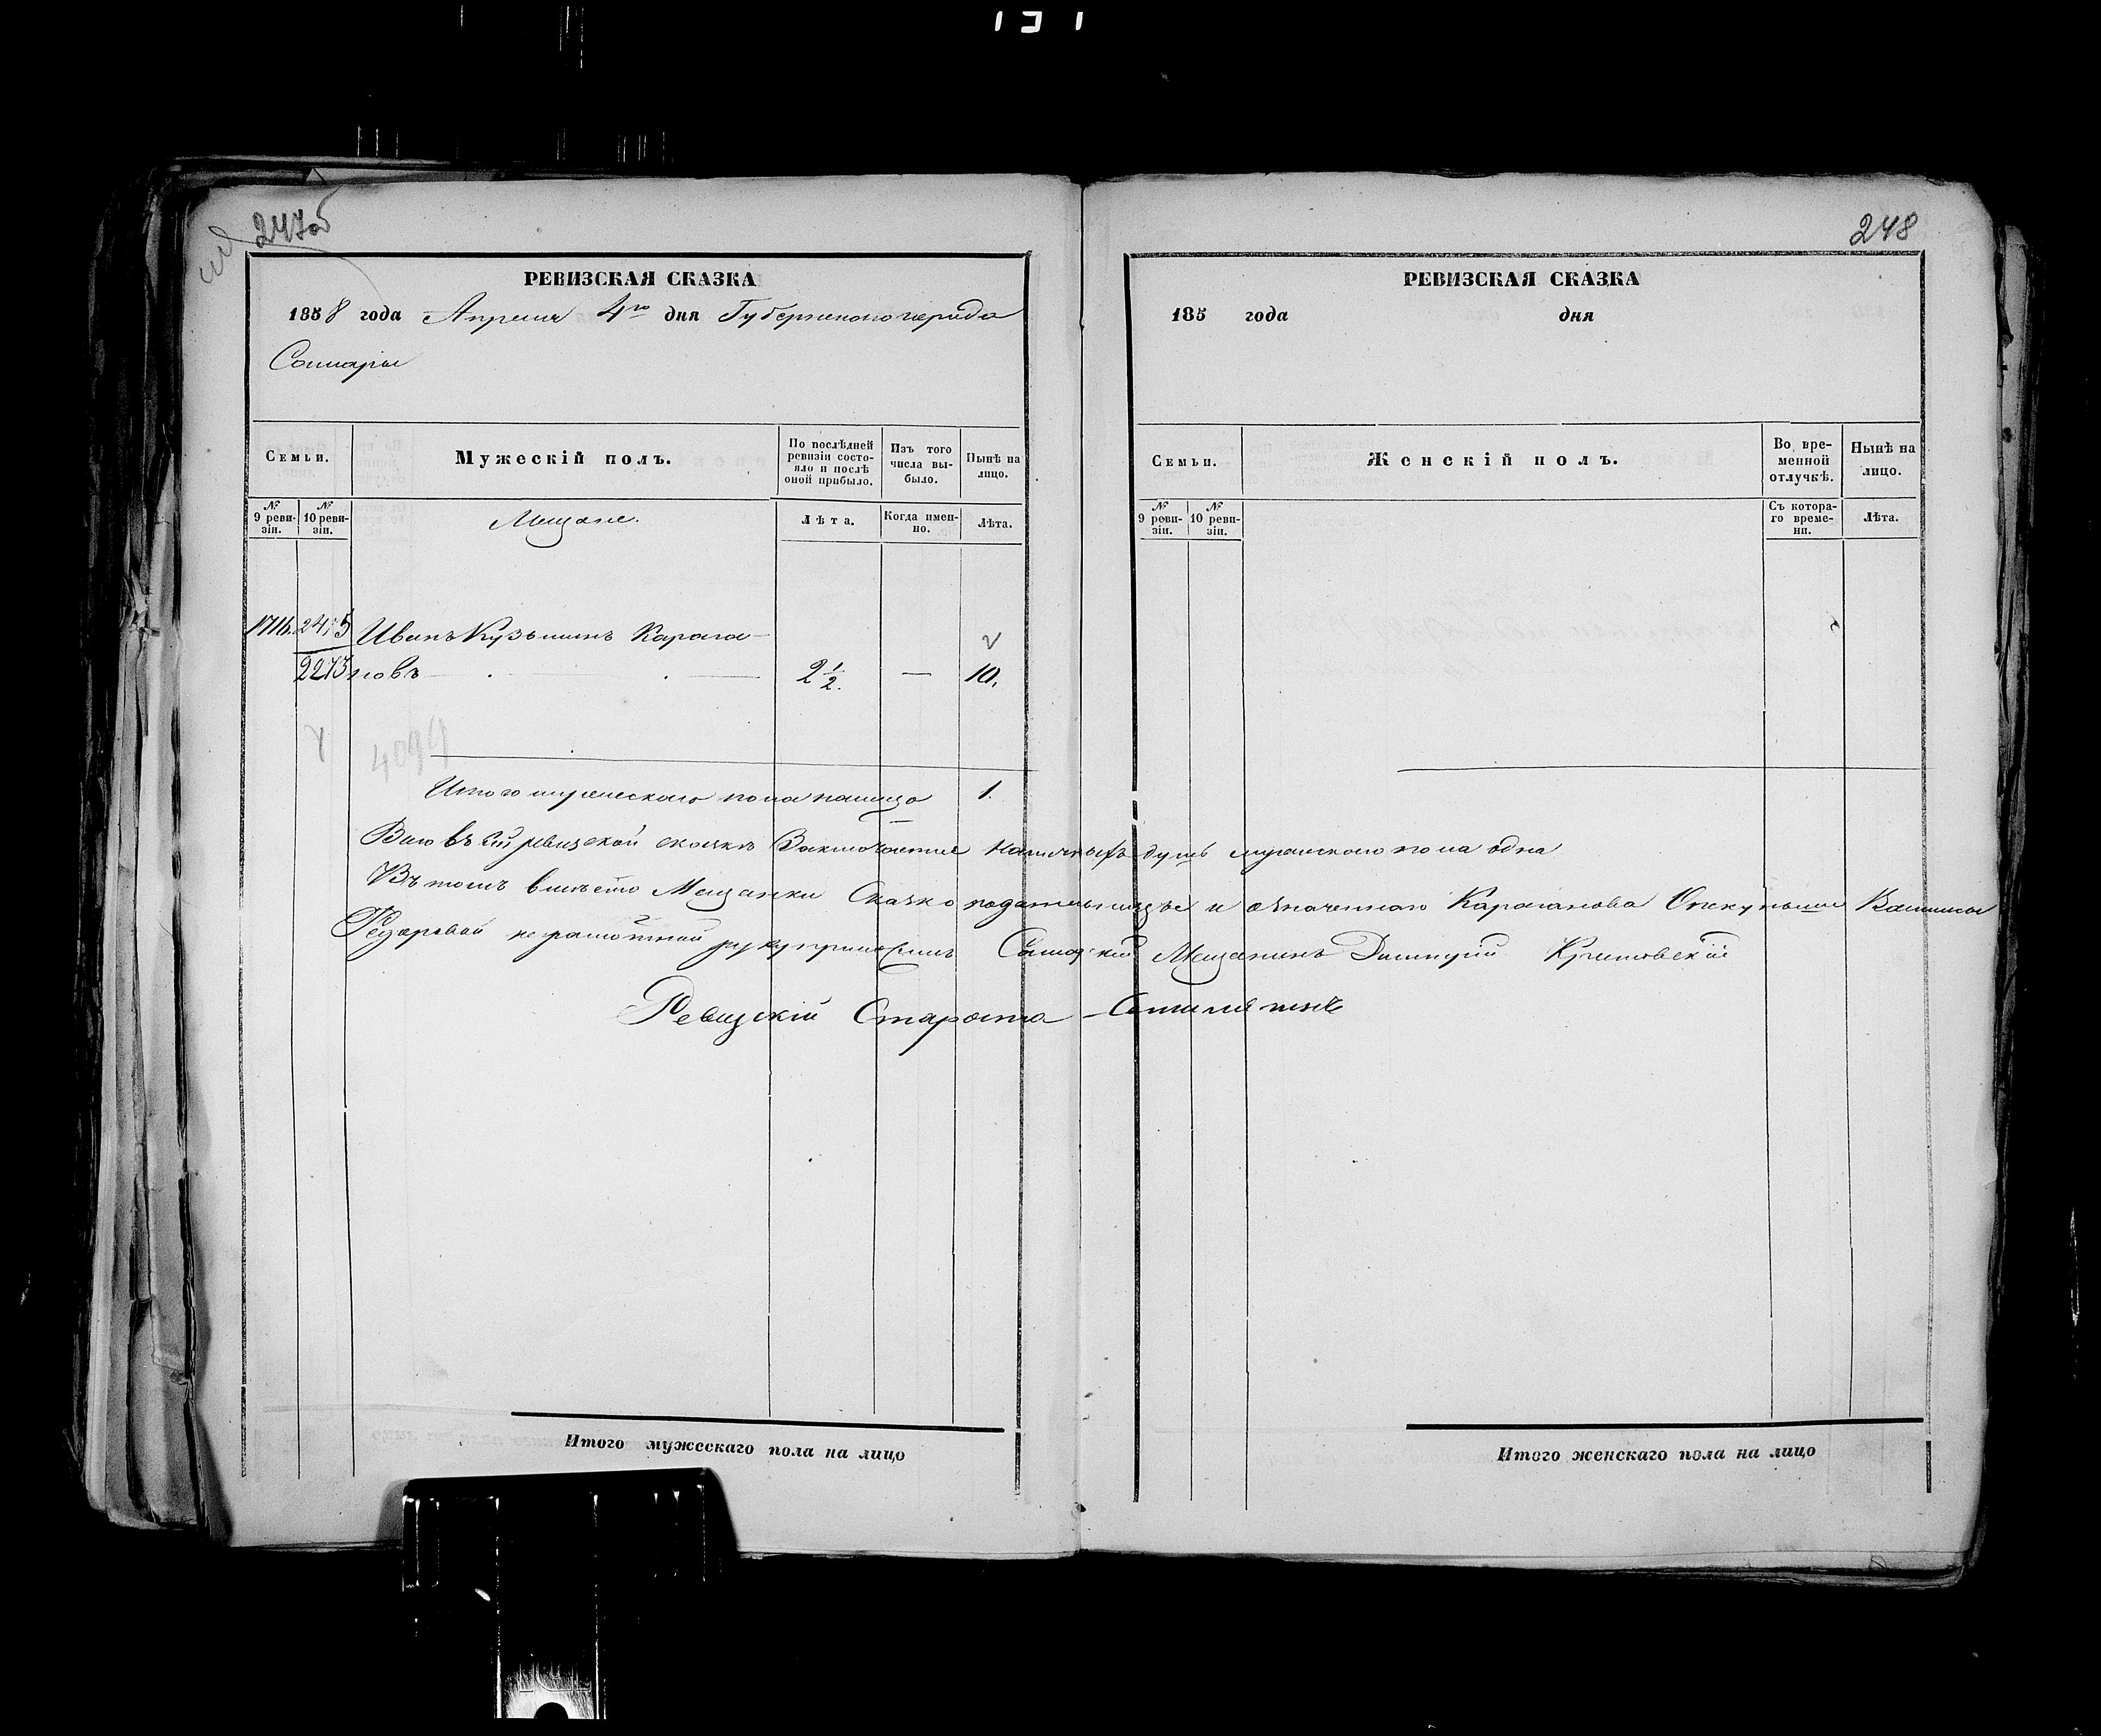 247об
РЕВИЗСКАЯ СКАЗКА
1858 года Апреля 4го дня Губернского города
Самары
Семьи.
Мужескій полъ.
По послѣдней ревизіи состояло и послѣ оной прибыло.
Изъ того числа выбыло.
Нынѣ на лицо.
№ 9 ревизіи.
№ 10 ревизіи.
Мещане.
Лѣта.
Когда именно.
Лѣта.
1716. 2475 Иванъ Кузьминъ Карага-
2273 новъ 2 1/2. — 10.
4099
Итого мужескаго пола налицо 1.
Въ сей ревизской сказкѣ Заключается наличныхъ душъ мужескаго пола одна
Въ томъ вместо Мещанки Сказкоподательницы и означеннаго Караганова Опекунши
Федоровой неграмотной руку приложилъ Самарский Мещанинъ Димитрій
Ревизскій Староста
Итого мужескаго пола на лицо
248
РЕВИЗСКАЯ СКАЗКА
185 года дня
Семьи.
Женскій полъ.
Во временной отлучкѣ.
Нынѣ на лицо.
№ 9 ревизіи.
№ 10 ревизіи.
Съ котораго времени.
Лѣта.
Итого женскаго пола на лицо